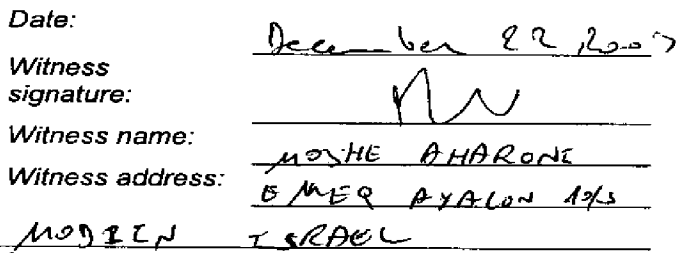 Date: December 22, 2007
Witness
signature:
Witness name: MOSHE AHARONI
Witness address: EMEQ AYALON
MODIIN ISRAEL